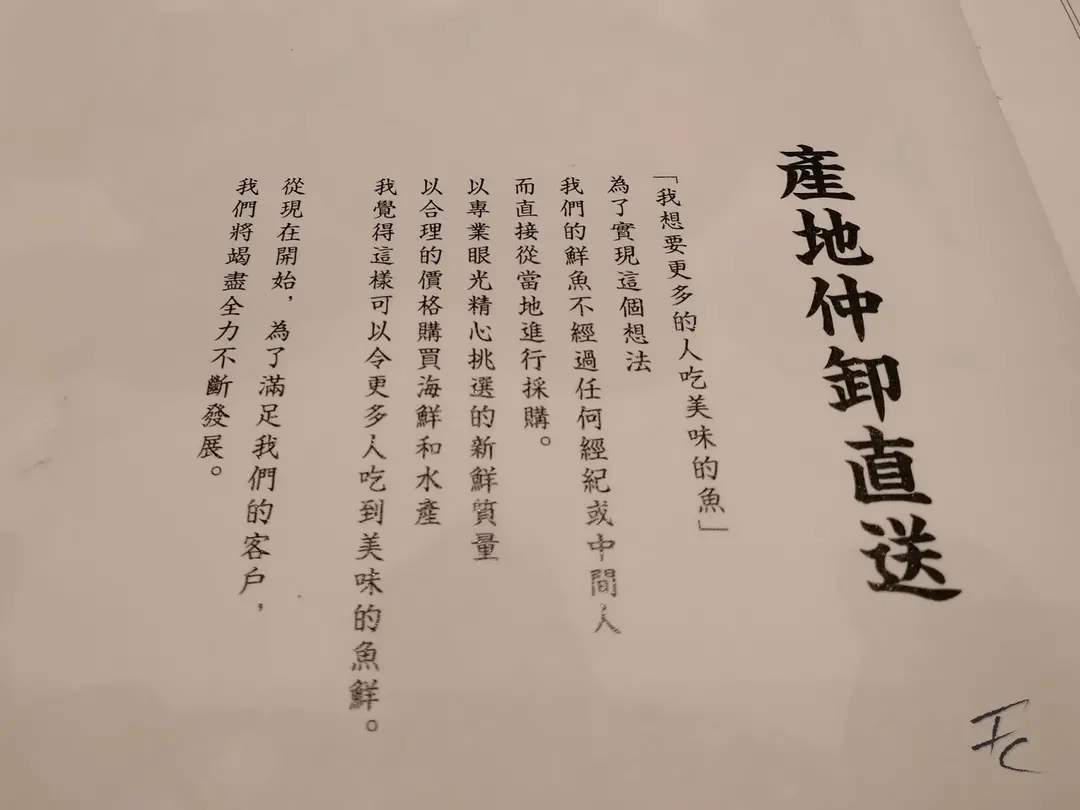 產地仲卸直送
「我想要更多的人吃美味的魚」
為了實現這個想法
我們的鮮魚不經過任何經紀或中間人
而直接從當地進行採購。
以專業眼光精心挑選的新鮮質量
以合理的價格購買海鮮和水產
我覺得這樣可以令更多人吃到美味的魚鮮。
從現在開始，為了滿足我們的客戶，
我們將竭盡全力不斷發展。